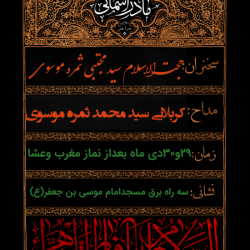 مادر آسمانی
سخنران: حجت الاسلام سید مجتبی ثمره موسوی
مداح: کربلایی سید محمد ثمره موسوی
زمان: ۲۹و۳۰دی ماه بعداز نماز مغرب وعشا
نشانی: سه راه برق مسجدامام موسی بن جعفر(ع)
السلام